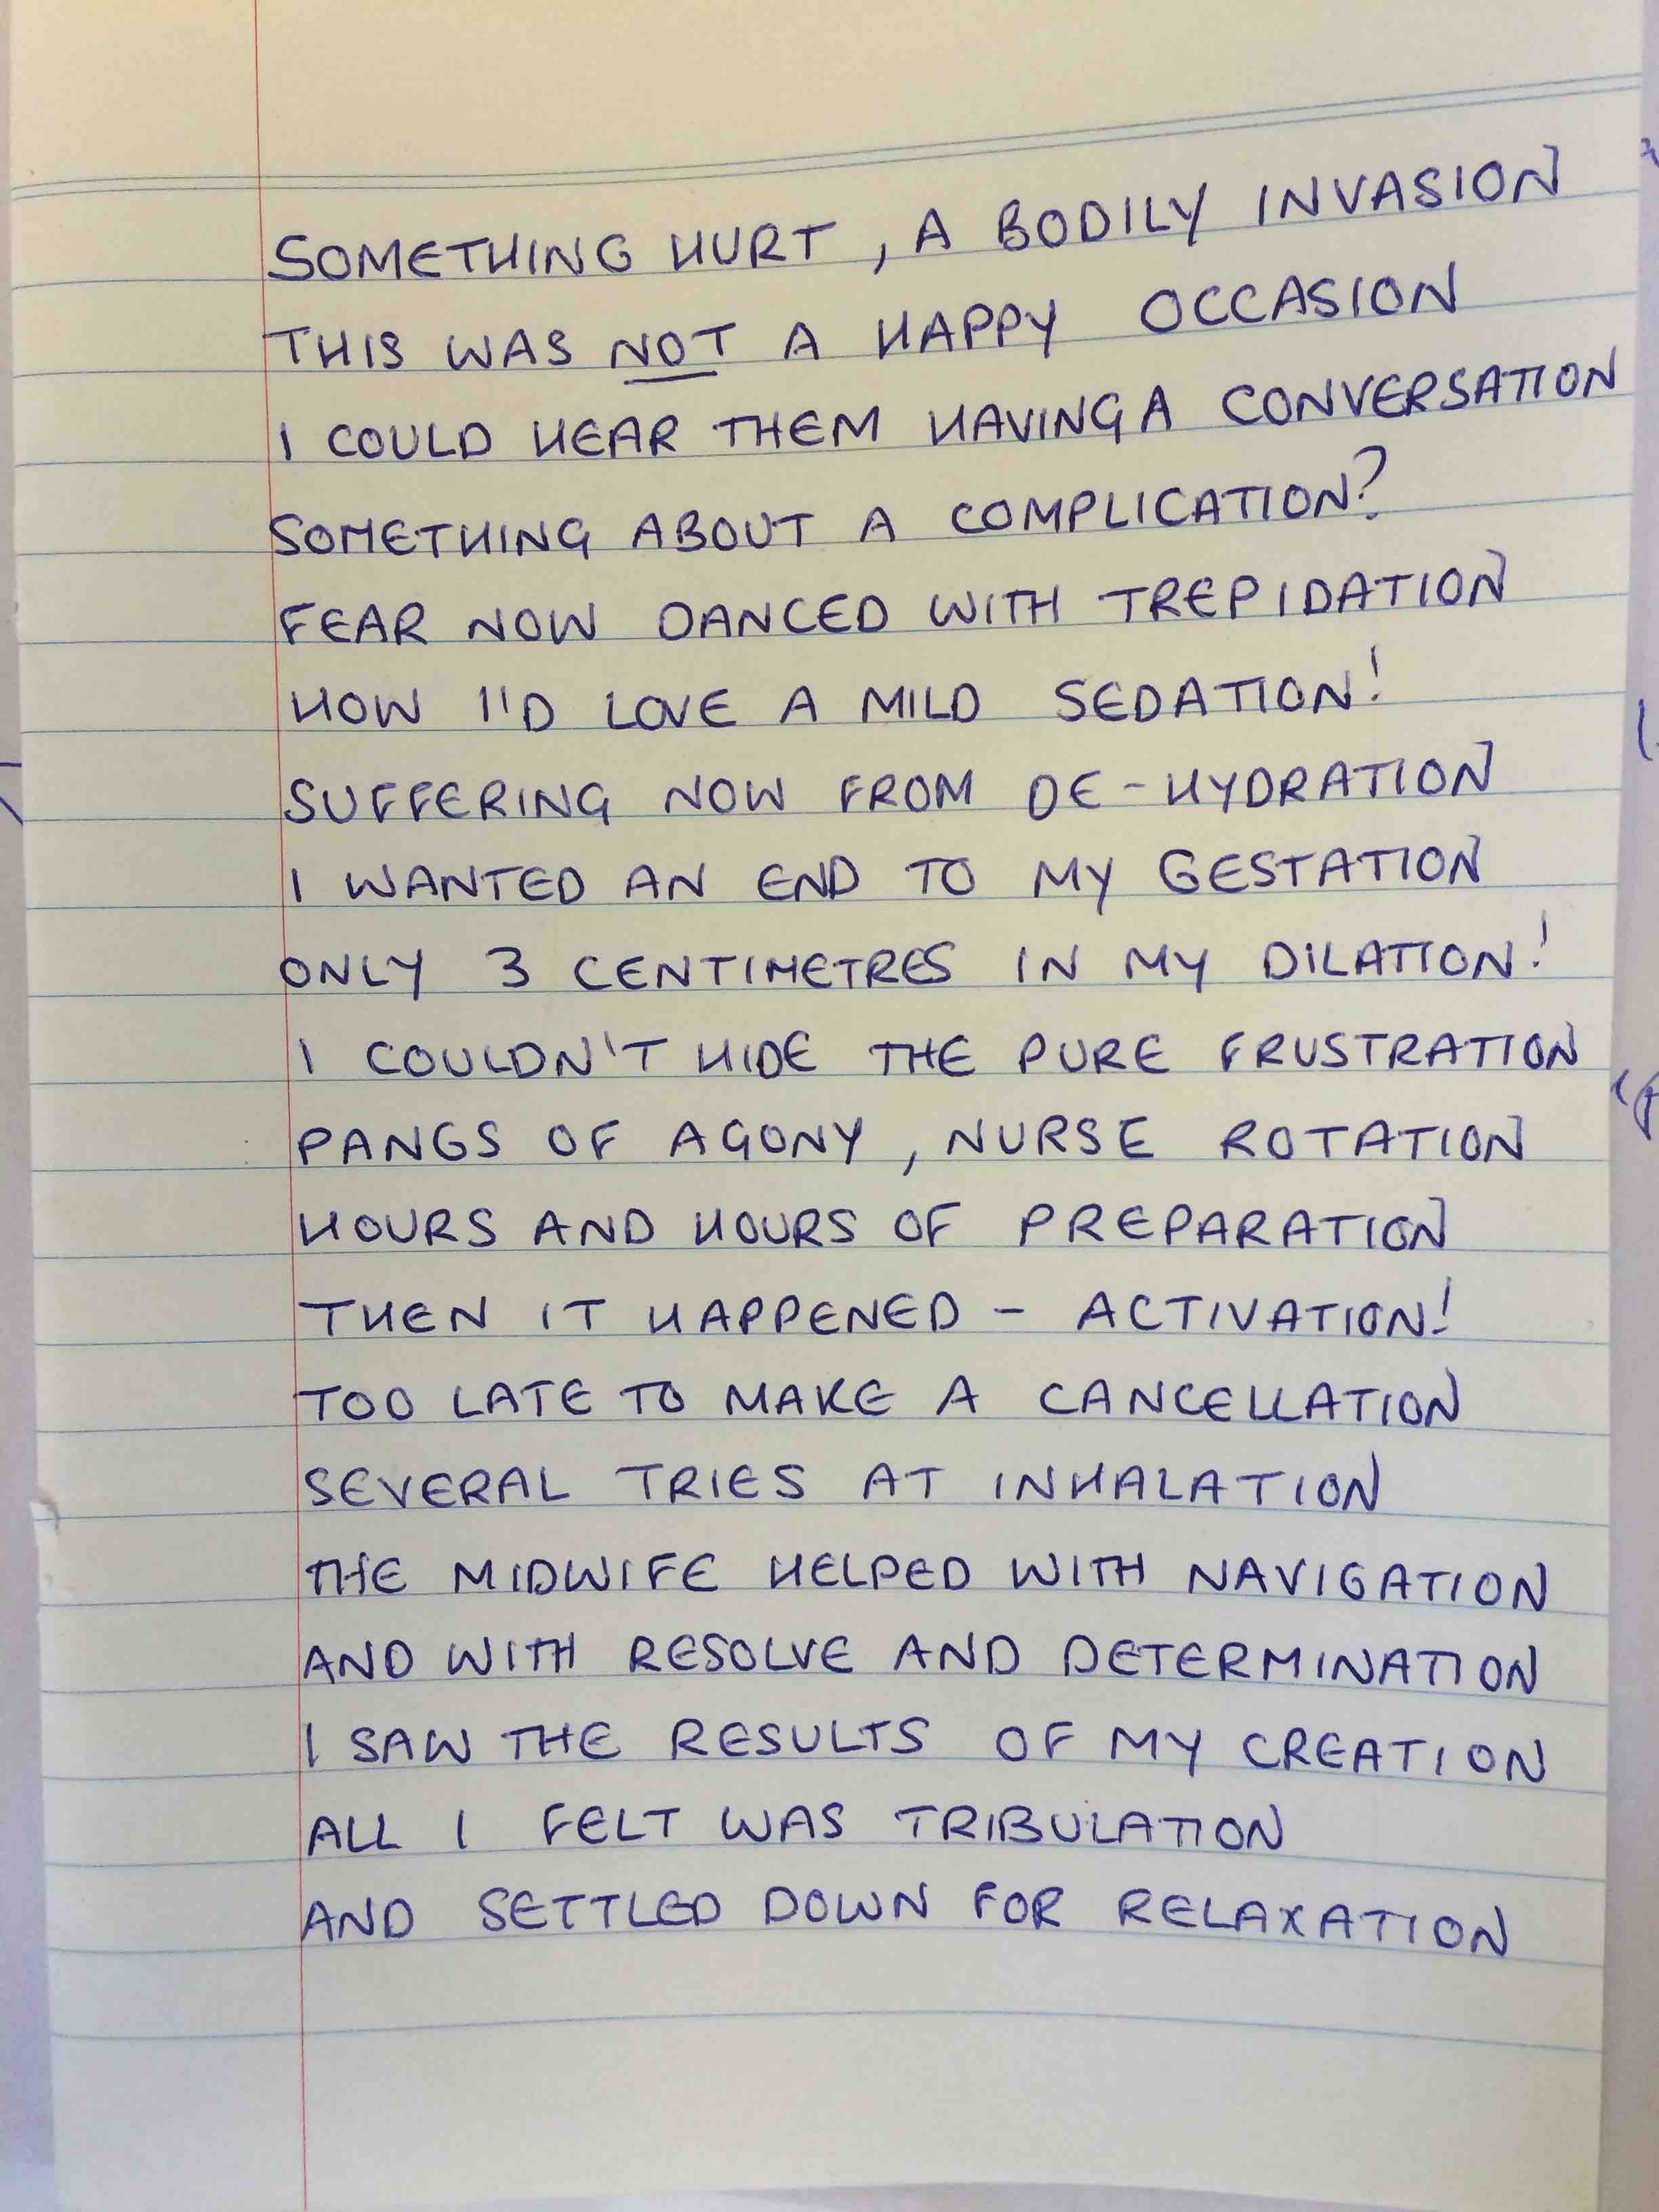 SOMETHING HURT, A BODILY INVASION
THIS WAS NOT A HAPPY OCCASION
I COULD HEAR THEM HAVING A CONVERSATION
SOMETHING ABOUT A COMPLICATION?
FEAR NOW DANCED WITH TREPIDATION
HOW I'D LOVE A MILD SEDATION!
SUFFERING NOW FROM DE-HYDRATION
I WANTED AN END TO MY GESTATION
ONLY 3 CENTIMETRES IN MY DILATION!
I COULDN'T HIDE THE PURE FRUSTRATION
PANGS OF AGONY, NURSE ROTATION
HOURS AND HOURS OF PREPARATION
THEN IT HAPPENED - ACTIVATION!
TOO LATE TO MAKE A CANCELLATION
SEVERAL TRIES AT INHALATION
THE MIDWIFE HELPED WITH NAVIGATION
AND WITH RESOLVE AND DETERMINATION
I SAW THE RESULTS OF MY CREATION
ALL I FELT WAS TRIBULATION
AND SETTLED DOWN FOR RELAXATION